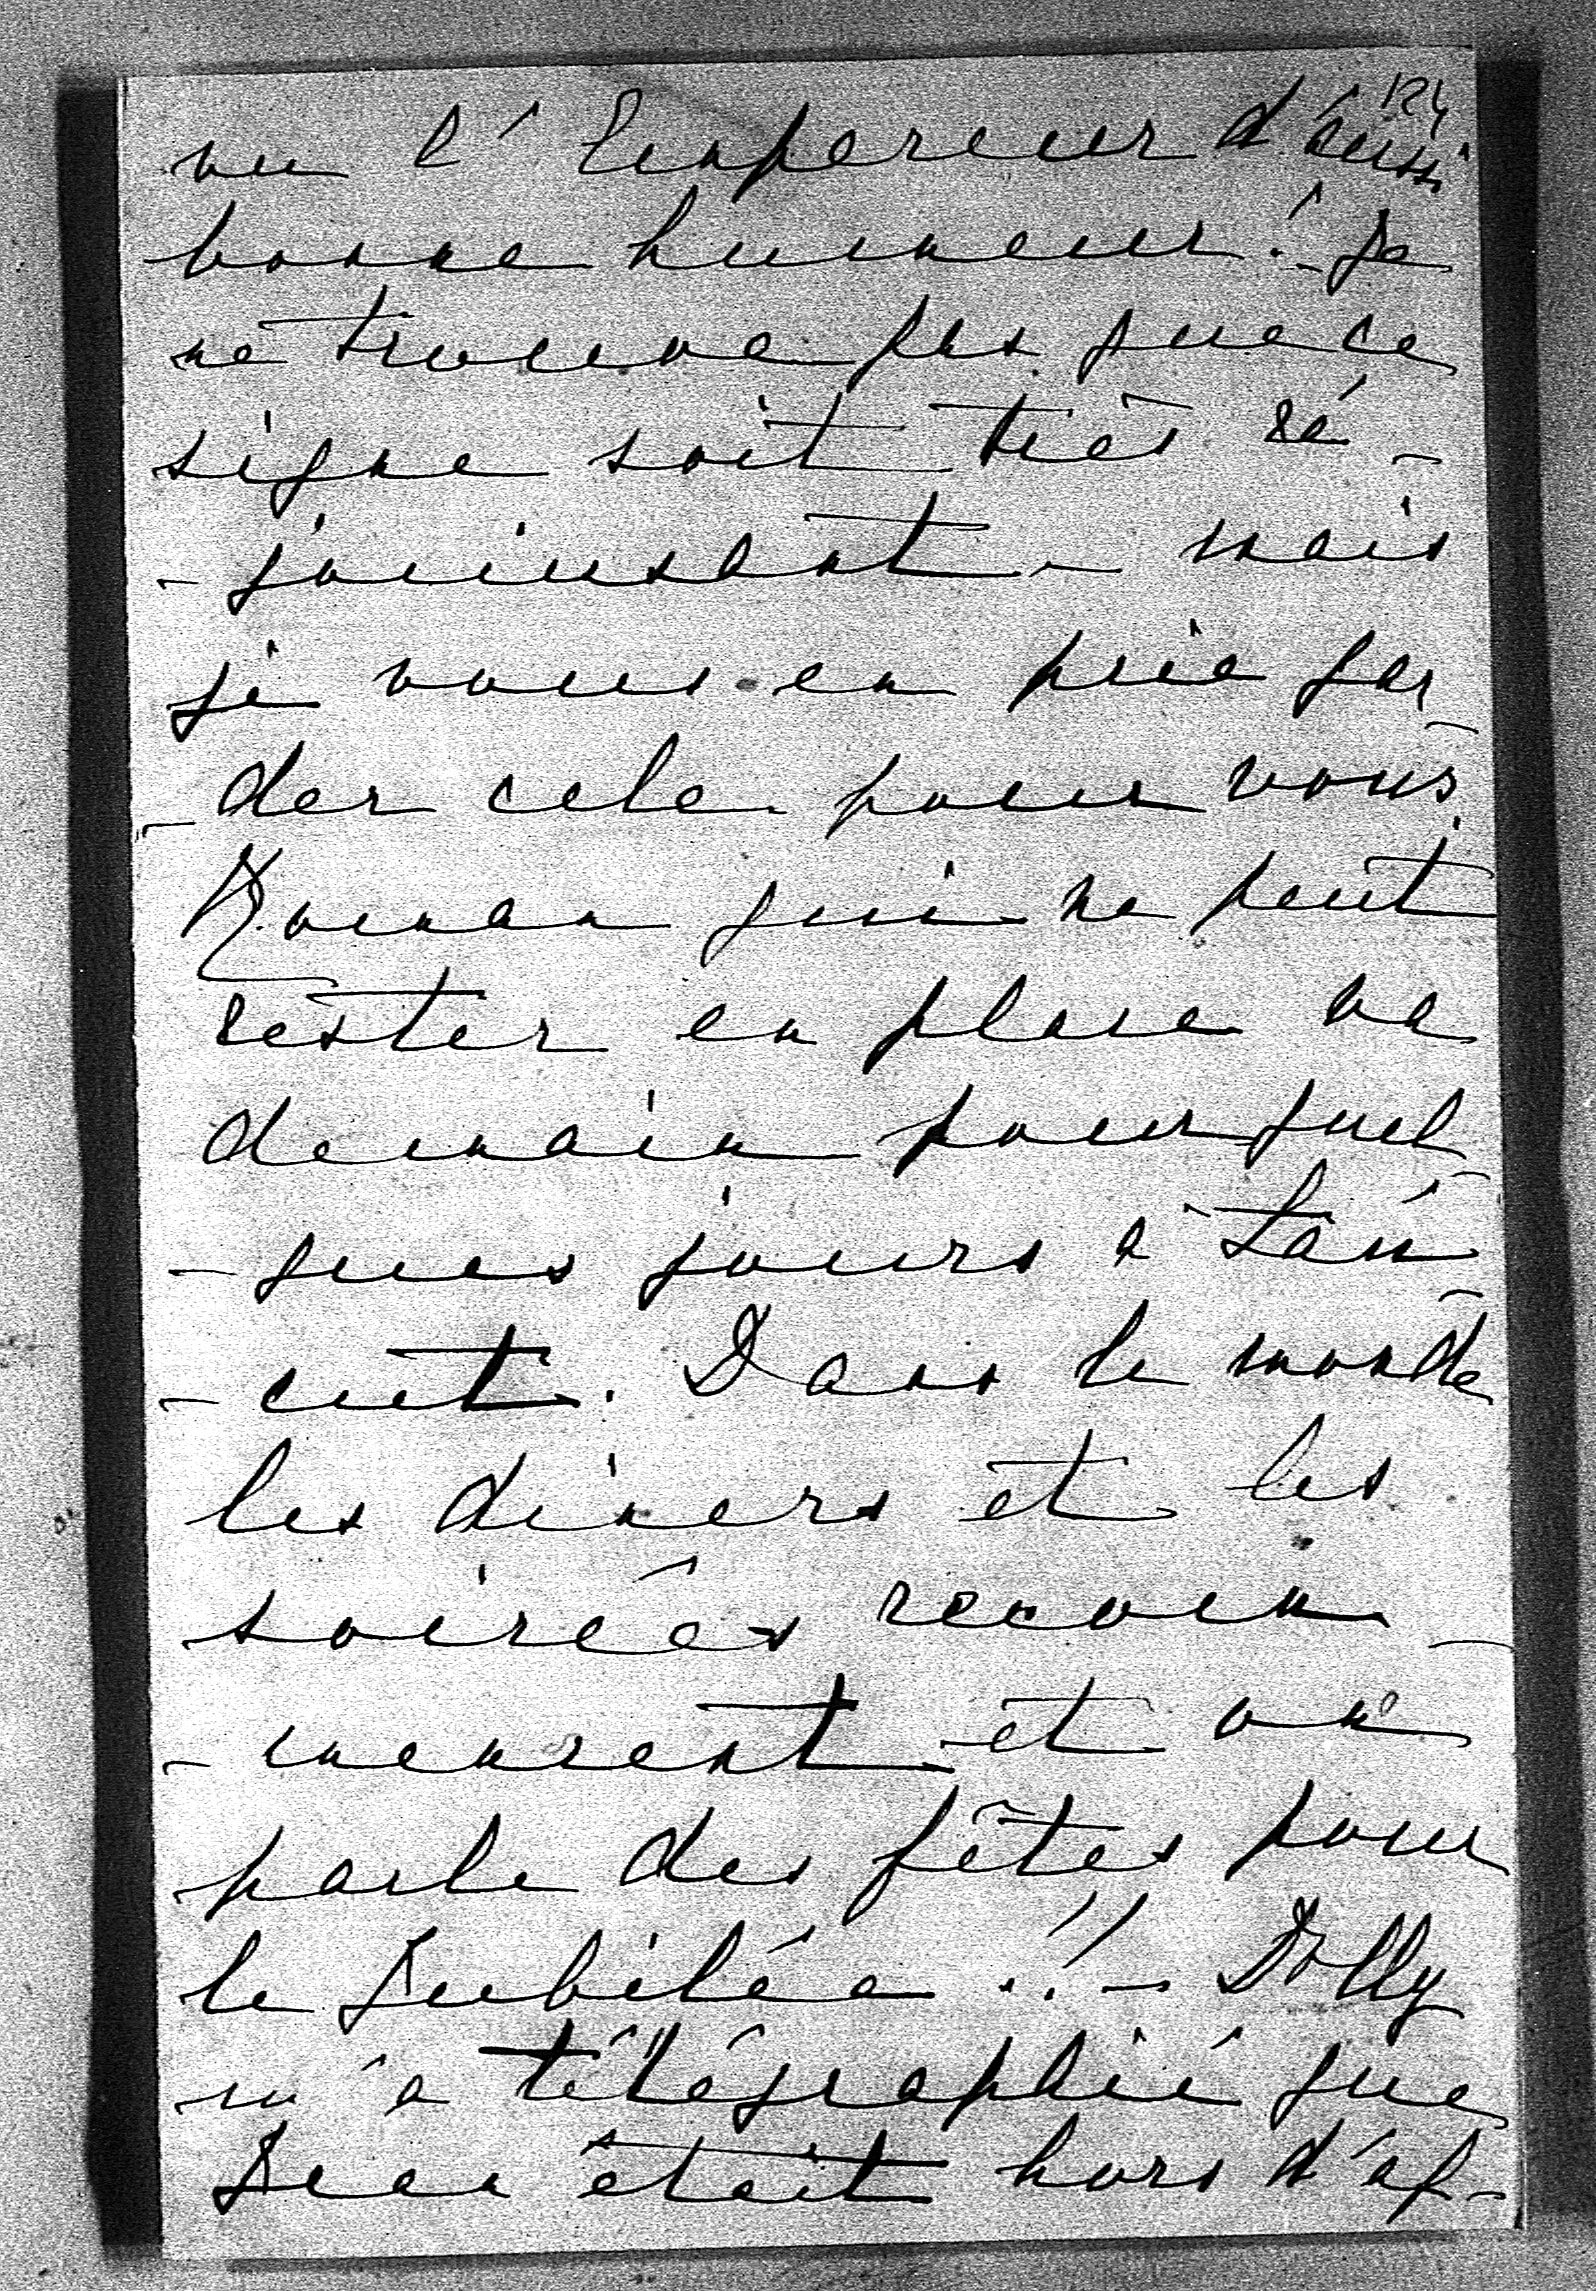 124
vu l'Empereur d'aussi
bonne humeur! - Je
ne trouve pas que ce
signe soit très ré-
-jouissant - mais
je vous en prie gar-
-der cela pour vous.
Rouman qui ne peut
rester en place va
demain pour quel-
-ques jours à Lan-
-cut. Dans le monde
les diners et les
soirées recom-
-mencent et on
parle des fêtes pour
le Jubilée.!! - Dolly
m'a télégraphié que
était hors d'af-